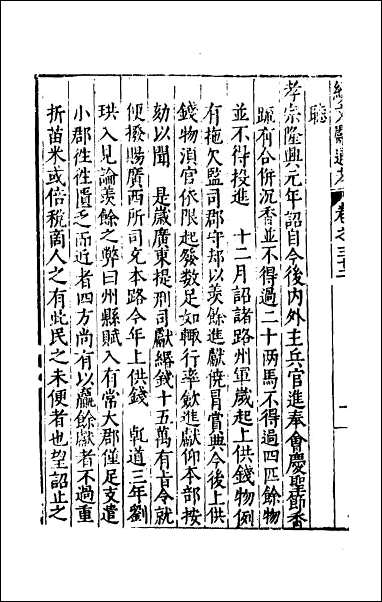 續文獻通考 卷之三十三
聽
孝宗隆興元年詔自今後內外主兵官進奉會慶聖節香
䟽有合併沉香並不得過二十两馬不得過四匹餘物
並不得投進　十二月詔諸路州軍歲起上供錢物例
有拖欠監司郡守却以羡餘進獻僥冐賞典今後上供
錢物湏官依限起發數足如輙行率歛進獻仰本部按
劾以聞　是歲廣東提刑司獻緡錢十五萬有㫖令就
便撥賜廣西所司充本路今年上供錢　乹道三年劉
珙入見論羡餘之弊曰州縣賦入有常大郡僅足支遣
小郡徃徃匱乏而近者四方尚有以羸餘獻者不過重
折苗米或倍稅商人之有此民之未便者也望詔止之